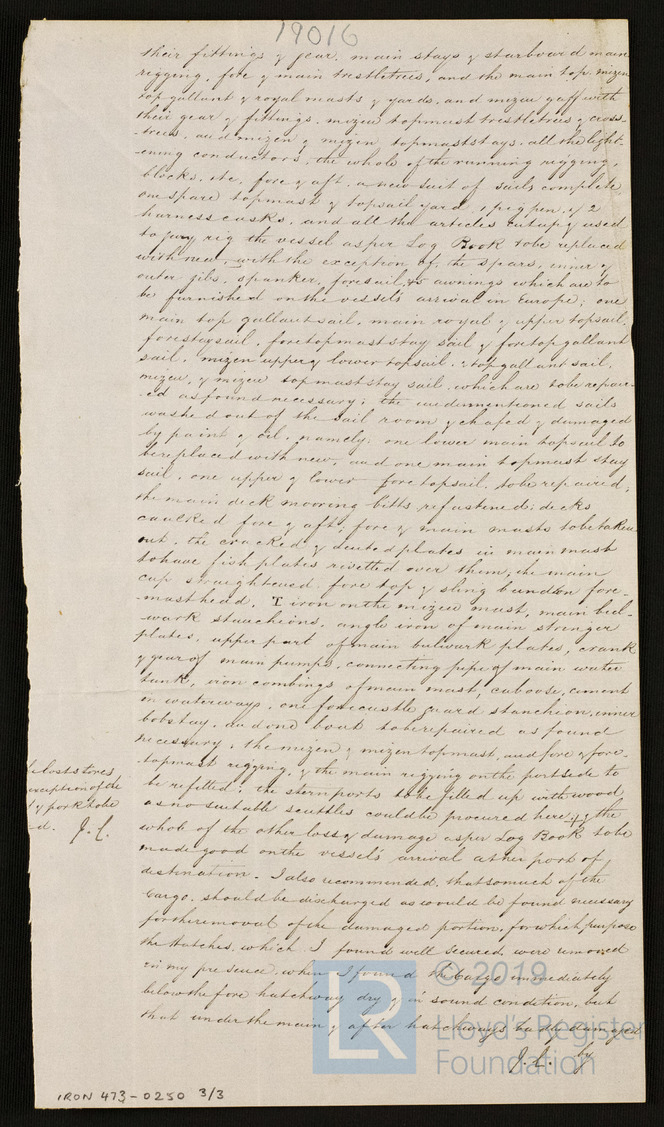 19016
their fittings & gear, main stays & starboard main
rigging, fore & main trestletrees, and the main top, mizen
top gallant & royal masts & yards, and mizen gaff with
their gear & fittings, mizen topmast trestletrees & cross-
-trees, and mizen & mizen topmast stays, all the light-
-ening conductors, the whole of the running rigging,
blocks, etc, fore & aft, a new suit of sails complete
one spare topmast & topsail yard, 1 pig pen, & 2
harness casks, and all the articles cut up & used
to jury rig the vessel as per Log Book to be replaced
with new, with the exception of, the spars, inner &
outer jibs, spanker, foresail, & awnings which are to
be furnished on the vessel's arrival in Europe; one
main top gallant sail, main royal & upper topsail,
forestaysail, foretopmast stay sail & foretop gallant
sail, mizen upper & lower topsail, & top gallant sail,
mizen, & mizen topmast stay sail, which are to be repair-
-ed as found necessary; the undermentioned sails
washed out of the sail room & chafed & damaged
by paint & oil, namely: one lower main topsail to
be replaced with new, and one main topmast stay
sail, one upper & lower foretopsail, to be repaired;
the main deck mooring bitts refastened; decks
caulked fore & aft; fore & main masts to be taken
out, the cracked & dented plates in main mast
to have fish plates rivetted over them, the main
cap straightened, fore top & sling band on fore-
-masthead, I iron on the mizen mast, main bul-
-wark stanchions, angle iron of main stringer
plates, upper part of main bulwark plates, crank
& gear of main pumps, connecting pipe of main water
tank, iron combings of main mast, caboose, cement
in waterways, one forecastle guard stanchion, inner
bobstay, and one boat to be repaired as found
necessary, the mizen & mizen topmast, and fore & fore-
-topmast rigging, & the main rigging on the port side to
be refitted; the stern ports to be filled up with wood
as no suitable scuttles could be procured here + & the
whole of the other loss & damage as per Log Book to be
made good on the vessel's arrival at her port of
destination. - I also recommended, that so much of the
Cargo, should be discharged as would be found necessary
for the removal of the damaged portion, for which purpose
the Hatches, which I found well secured, were removed
in my presence, when I found the Cargo immediately
below the fore hatchway dry & in sound condition, but
that under the main & after hatchways badly damaged
J.L. by
lost stores
exception of the
& pork to be
-d. J.L.
IRON 473-0250 3/3
LR
© 2019
Lloyd's Register
Foundation